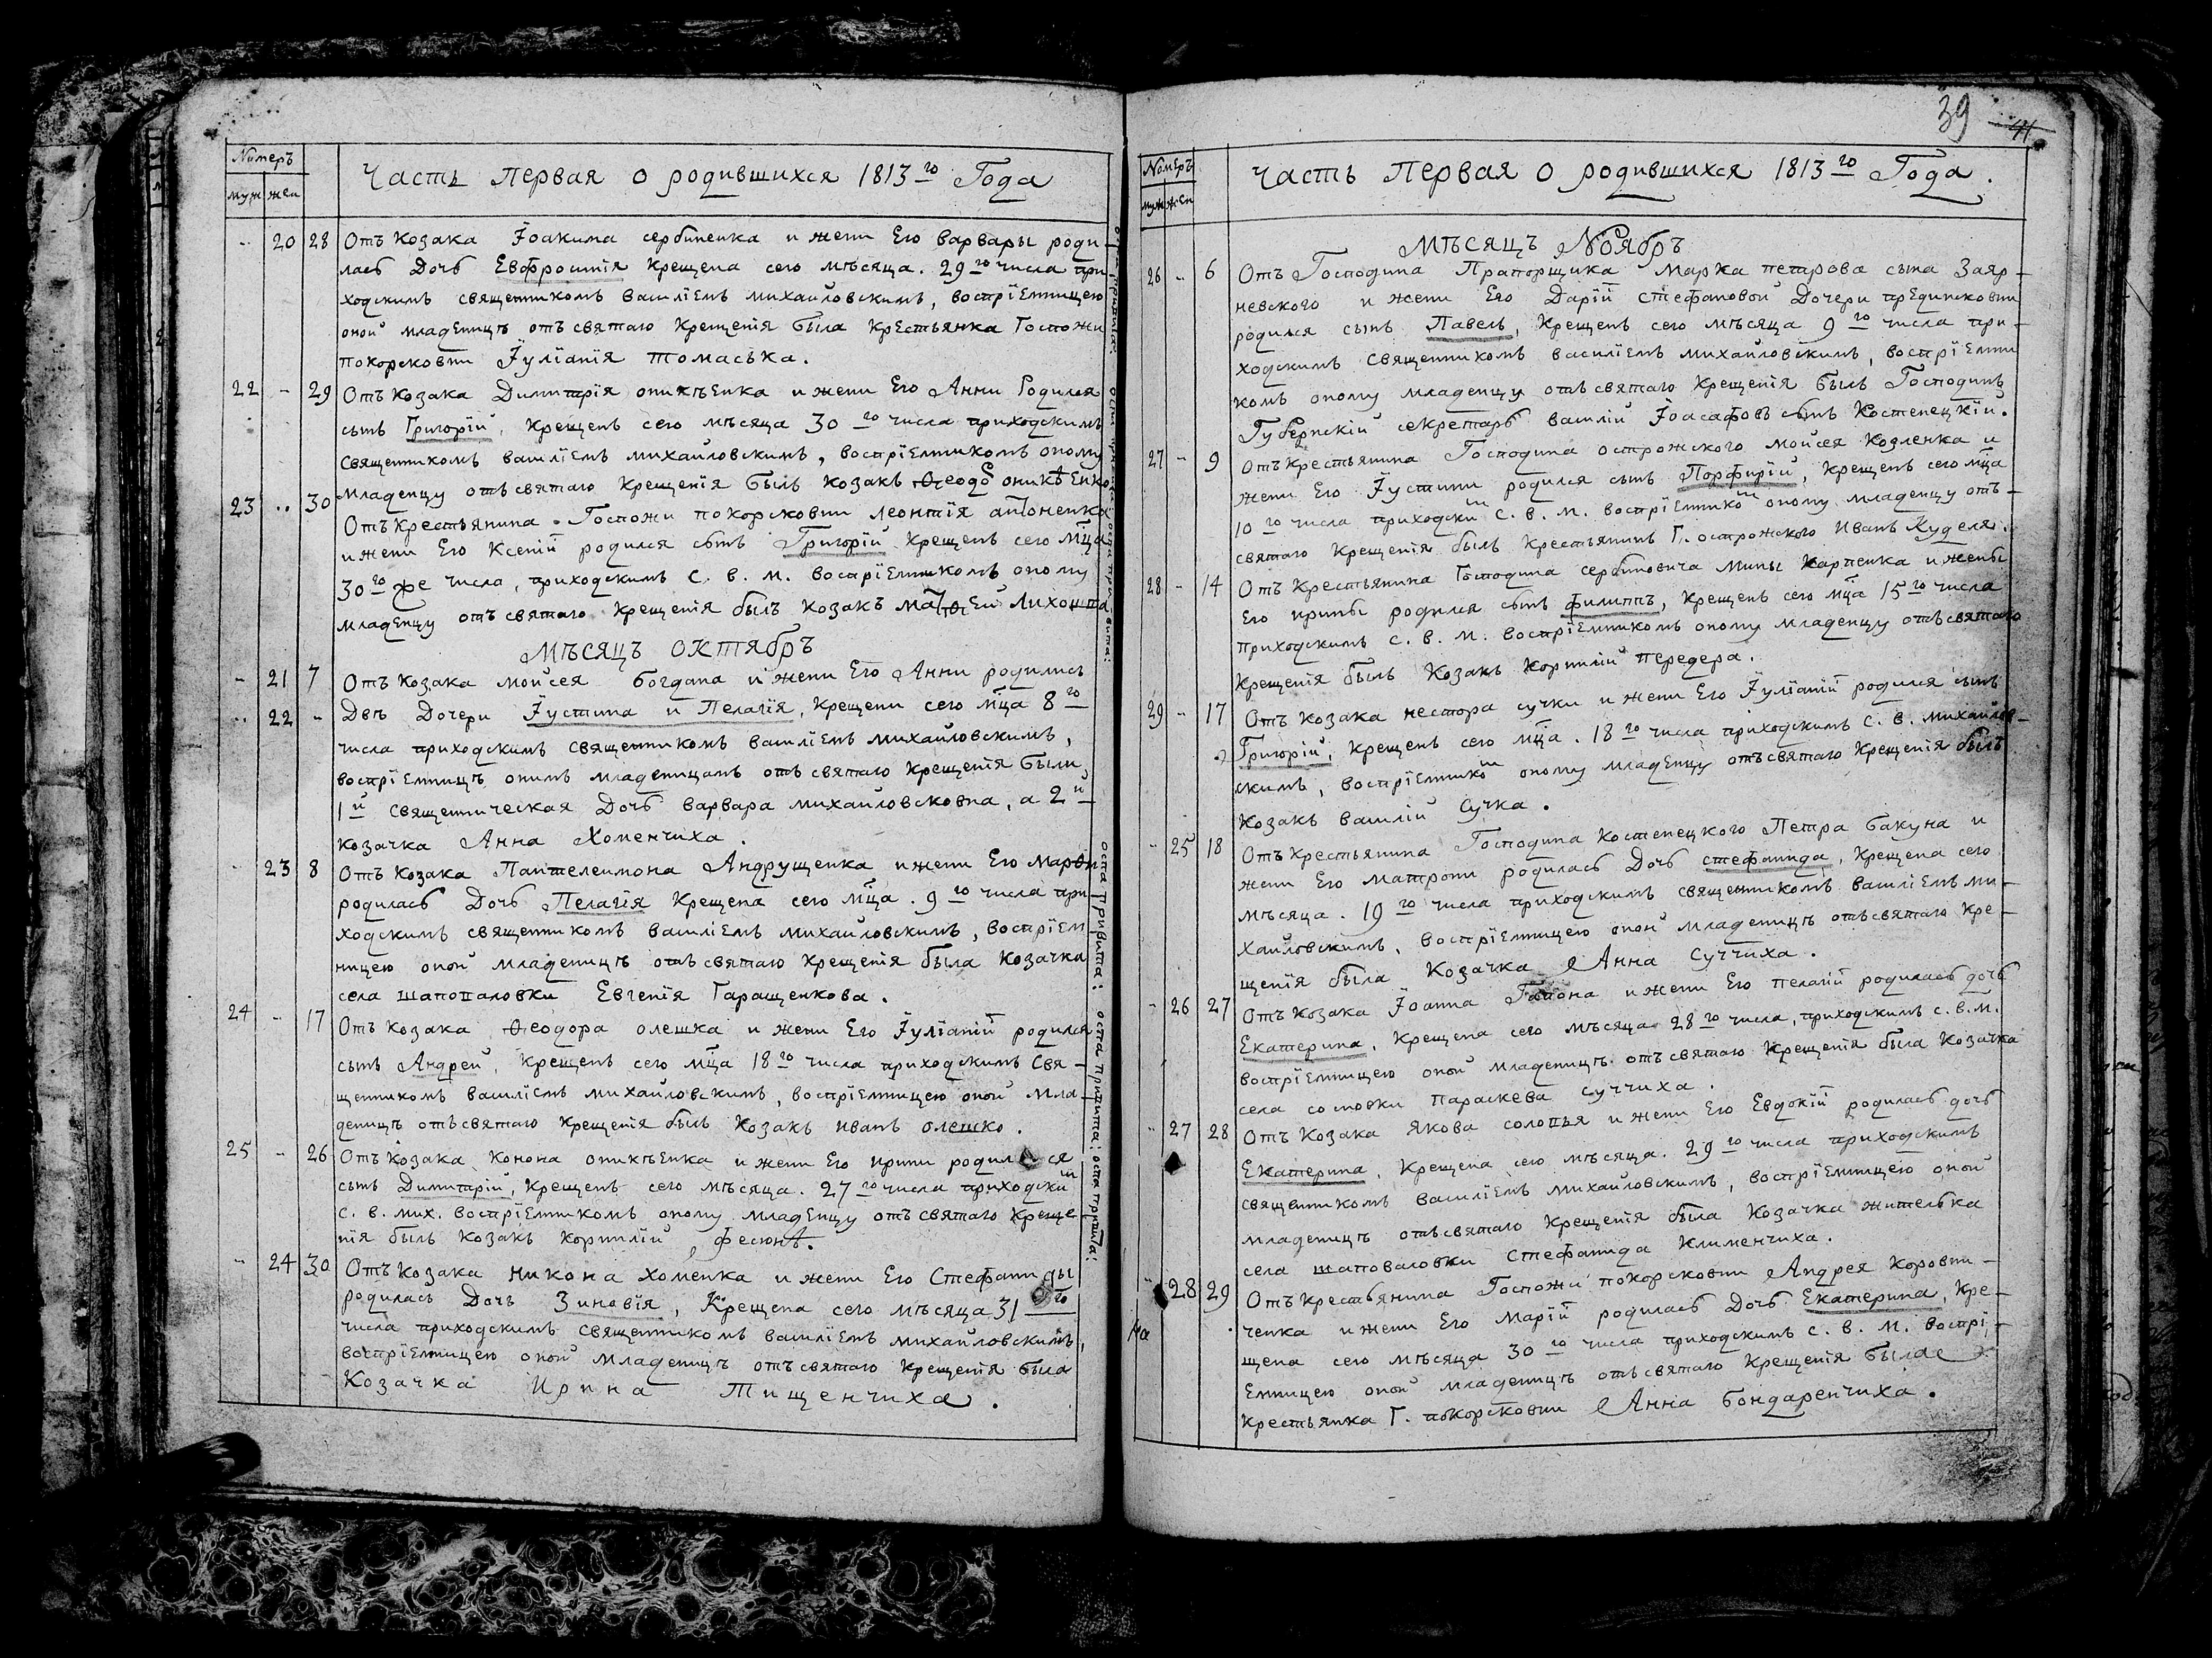 Номеръ
муж жен
Часть первая о родившихся 1813го Года
.. 20 28 Отъ козака Іоакима сербиненка и жени Его варвары роди-
лась Дочь Евфросинія Крещена сего мѣсяца. 29го числа при-
ходскимъ священникомъ василіемъ михайловскимъ, воспріемницею
оной младеницѣ отъ святаго Крещенія была крестьянка Госпожи
покорсковни Іуліанія томаська.
22 - 29 Отъ козака Димитрія оникѣенка и жени Его Анни Родился
сынъ Григорій, Крещенъ сего мѣсяца 30го числа приходскимъ
священникомъ василіемъ михайловскимъ, воспріемникомъ оному
младенцу отъ святаго Крещенія былъ козакъ Ѳеодо оникѣенко
23 .. 30 Отъ крестьянина Госпожи покорсковни леонтія антоненка
и жени Его Ксеніи родился сынъ Григорій Крещенъ сего мца
30го же числа, приходскимъ С. в. м. воспріемникомъ оному
младенцу отъ святаго Крещенія былъ козакъ матѳей Лихошта
Мѣсяцъ октябръ
- 21 7 Отъ козака мойсея богдана и жени Его Анни родились
.. 22 - Двѣ Дочери Іустина и Пелагія, Крещени сего мца 8го
числа приходскимъ священникомъ василіемъ михайловскимъ,
воспріемницѣ онимъ младеницамъ отъ святаго Крещенія были
1й священническая Дочь варвара михайловсковна, а 2й
козачка Анна Хоменчиха.
23 8 Отъ козака Пантелеимона Андрущенка и жени Его Марѳи
родилась Дочь Пелагія Крещена сего мца. 9го числа при-
ходскимъ священникомъ василіемъ михайловскимъ, воспріем-
ницею оной младеницѣ отъ святаго Крещенія была козачка
села шаповаловки Евгенія Гаращенкова.
24 - 17 Отъ козака Ѳеодора олешка и жени Его Іуліаніи родился
сынъ Андрей, Крещенъ сего мца 18го числа приходскимъ свя-
щенникомъ василіемъ михайловскимъ, воспріемницею оной мла-
деницѣ отъ святаго Крещенія былъ козакъ иванъ олешко.
25 - 26 Отъ козака Конона оникѣенка и жени Его ирини родился
сынъ Димитрій, Крещенъ сего мѣсяца. 27го числа приходским
С. в. мих. воспріемникомъ оному младенцу отъ святаго Креще-
нія былъ козакъ корнилій фесюнъ.
- 24 30 Отъ козака Никона хоменка и жени Его Стефаниды
родилась Дочь Зиновія, Крещена сего мѣсяца 31го
числа приходскимъ священникомъ василіемъ михайловскимъ,
воспріемницею оной младеницѣ отъ святаго Крещенія была
Козачка Ирина Тищенчиха.
оспа привита: оспа привита: оспа привита: оспа привита:
39 41
Номеръ
муж жен
Часть первая о родившихся 1813го Года.
Мѣсяцъ Ноябръ
26 .. 6 Отъ Господина Прапорщика Марка петрова сына Заяр-
невского и жени Его Даріи стефановой Дочери
родился сынъ Павелъ, Крещенъ сего мѣсяца 9го числа при-
ходскимъ священникомъ василіемъ михайловскимъ, воспріемни
комъ оному младенцу отъ святаго Крещенія былъ Господинъ
Губернскій секретарь василій Іоасафовъ сынъ Костенецкій.
27 - 9 Отъ Крестьянина Господина острожского мойсея Козленка и
жени Его Іустини родился сынъ Порфирій, Крещенъ сего мца
10го числа приходским С. в. м. воспріемником оному младенцу отъ-
святаго Крещенія былъ крестьянинъ Г. острожского Иванъ Куделя.
28 - 14 Отъ Крестьянина Господина сербиновича Мины Карпенка и жены
Его ирины родился сынъ филиппъ, Крещенъ сего мца 15го числа
приходскимъ С. в. м. воспріемникомъ оному младенцу отъ святаго
Крещенія былъ Козакъ Корнилій передера.
29 - 17 Отъ козака нестора сучки и жени Его Іуліаніи родился сынъ
Григорій, Крещенъ сего мца. 18го числа приходскимъ С. в. михайлов-
скимъ, воспріемником оному младенцу отъ святаго Крещенія былъ
козакъ василій Сучка.
- 25 18 Отъ крестьянина Господина Костенецкого Петра бакуна и
жени Его матрони родилась Дочь стефанида, Крещена сего
мѣсяца. 19го числа приходскимъ священникомъ василіемъ ми-
хайловскимъ, воспріемницею оной младеницѣ отъ святаго Кре-
щенія была Козачка Анна Суччиха.
- 26 27 Отъ козака Іоанна Гапона и жени Его пелагіи родилась дочь
Екатерина, Крещена сего мѣсяца 28го числа, приходскимъ с. в. м.
воспріемницею оной младеницѣ отъ святаго Крещенія была Козачка
села сосновки параскева суччиха.
.. 27 28 Отъ козака якова солопья и жени Его Евдокіи родилась дочь
Екатерина, Крещена сего мѣсяца. 29го числа приходскимъ
священникомъ василіемъ михайловскимъ, воспріемницею оной
младеницѣ отъ святаго Крещенія была Козачка жителька
села шаповаловки Стефанида Клименчиха.
.. 28 29 Отъ крестьянина Госпожи покорсковни Андрея Коровни-
ченка и жени Его Маріи родилась Дочь Екатерина, Кре-
щена сего мѣсяца 30го числа приходскимъ С. в. м. воспрі-
емницею оной младеницѣ отъ святаго Крещенія была
крестьянка Г. покорсковни Анна бондаренчиха.